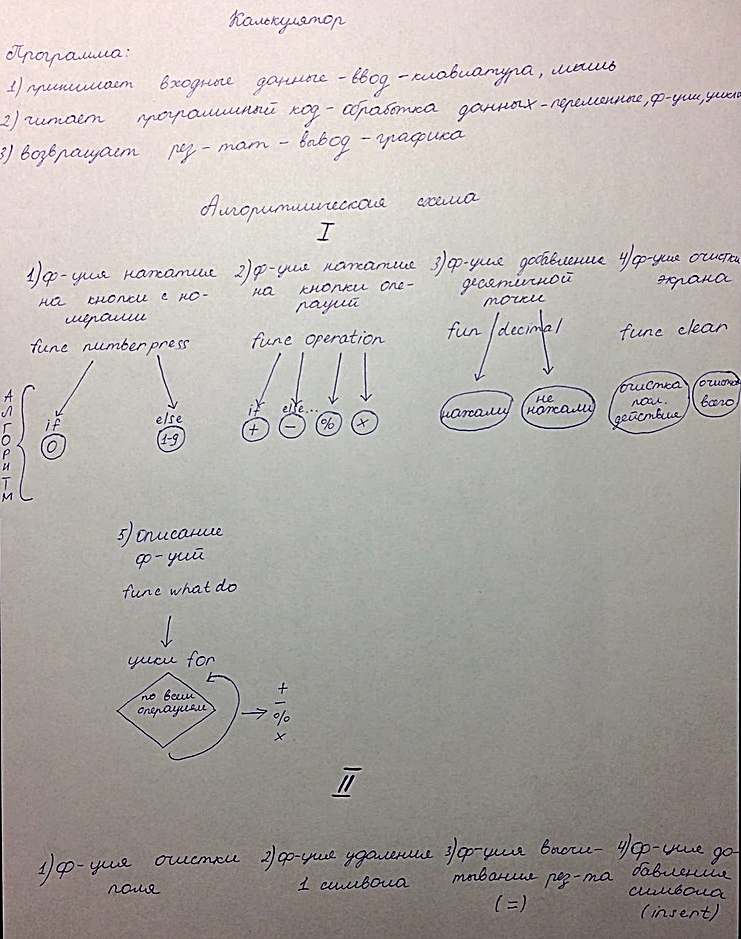 Калькулятор
Программа:
1) принимает входные данные - ввод - клавиатура, мышь
2) читает программный код - обработка данных - переменные, ф-ции, циклы
3) возвращает рез-тат - вывод - графика
Алгоритмическая схема
I
1) ф-ция нажатие
на кнопки с но-
мерами
func numberpress
if
0
else
1-9
2) ф-ция нажатия
на кнопки опе-
раций
func operation
if
else...
+
-
%
x
3) ф-ция добавление
десятичной
точки
fun decimal
нажали
не
нажали
4) ф-ция очистки
экрана
func clear
очистка
пол.
действие
очистка
всего
АЛГОРИТМ
5) описание
ф-ций
func what do
цикл for
по всем
операциям
+
-
%
x
II
1) ф-ция очистки
поля
2) ф-ция удаления
1 символа
3) ф-ция высчи-
тывание рез-та
(=)
4) ф-ция до-
бавления
символа
(insert)